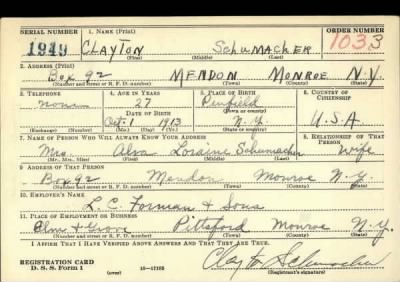 SERIAL NUMBER 1. NAME (Print) ORDER NUMBER
1949 CLAYTON SCHUMACHER 1033
(First) (Middle) (Last)
2. ADDRESS (Print)
Box 92 MENDON MONROE N.Y.
(Number and street or R. F. D. number) (Town) (County) (State)
3. TELEPHONE 4. AGE IN YEARS 5. PLACE OF BIRTH 6. COUNTRY OF CITIZENSHIP
none 27 Penfield
DATE OF BIRTH (Town or county)
Oct. 1 1913 N.Y. U.S.A
(Exchange) (Number) (Mo.) (Day) (Yr.) (State or country)
7. NAME OF PERSON WHO WILL ALWAYS KNOW YOUR ADDRESS 8. RELATIONSHIP OF THAT PERSON
Mrs. Loraine Schumacher Wife
(Mr., Mrs., Miss) (First) (Middle) (Last)
9. ADDRESS OF THAT PERSON
Box 92 Mendon Monroe N.Y.
(Number and street or R. F. D. number) (Town) (County) (State)
10. EMPLOYER'S NAME
L.C. Forman & Sons
11. PLACE OF EMPLOYMENT OR BUSINESS
Elm & Grove Pittsford Monroe N.Y.
(Number and street or R. F. D. number) (Town) (County) (State)
I AFFIRM THAT I HAVE VERIFIED ABOVE ANSWERS AND THAT THEY ARE TRUE.
REGISTRATION CARD
D. S. S. Form 1 (over) 16—17105 Clayton Schumacher
(Registrant's signature)